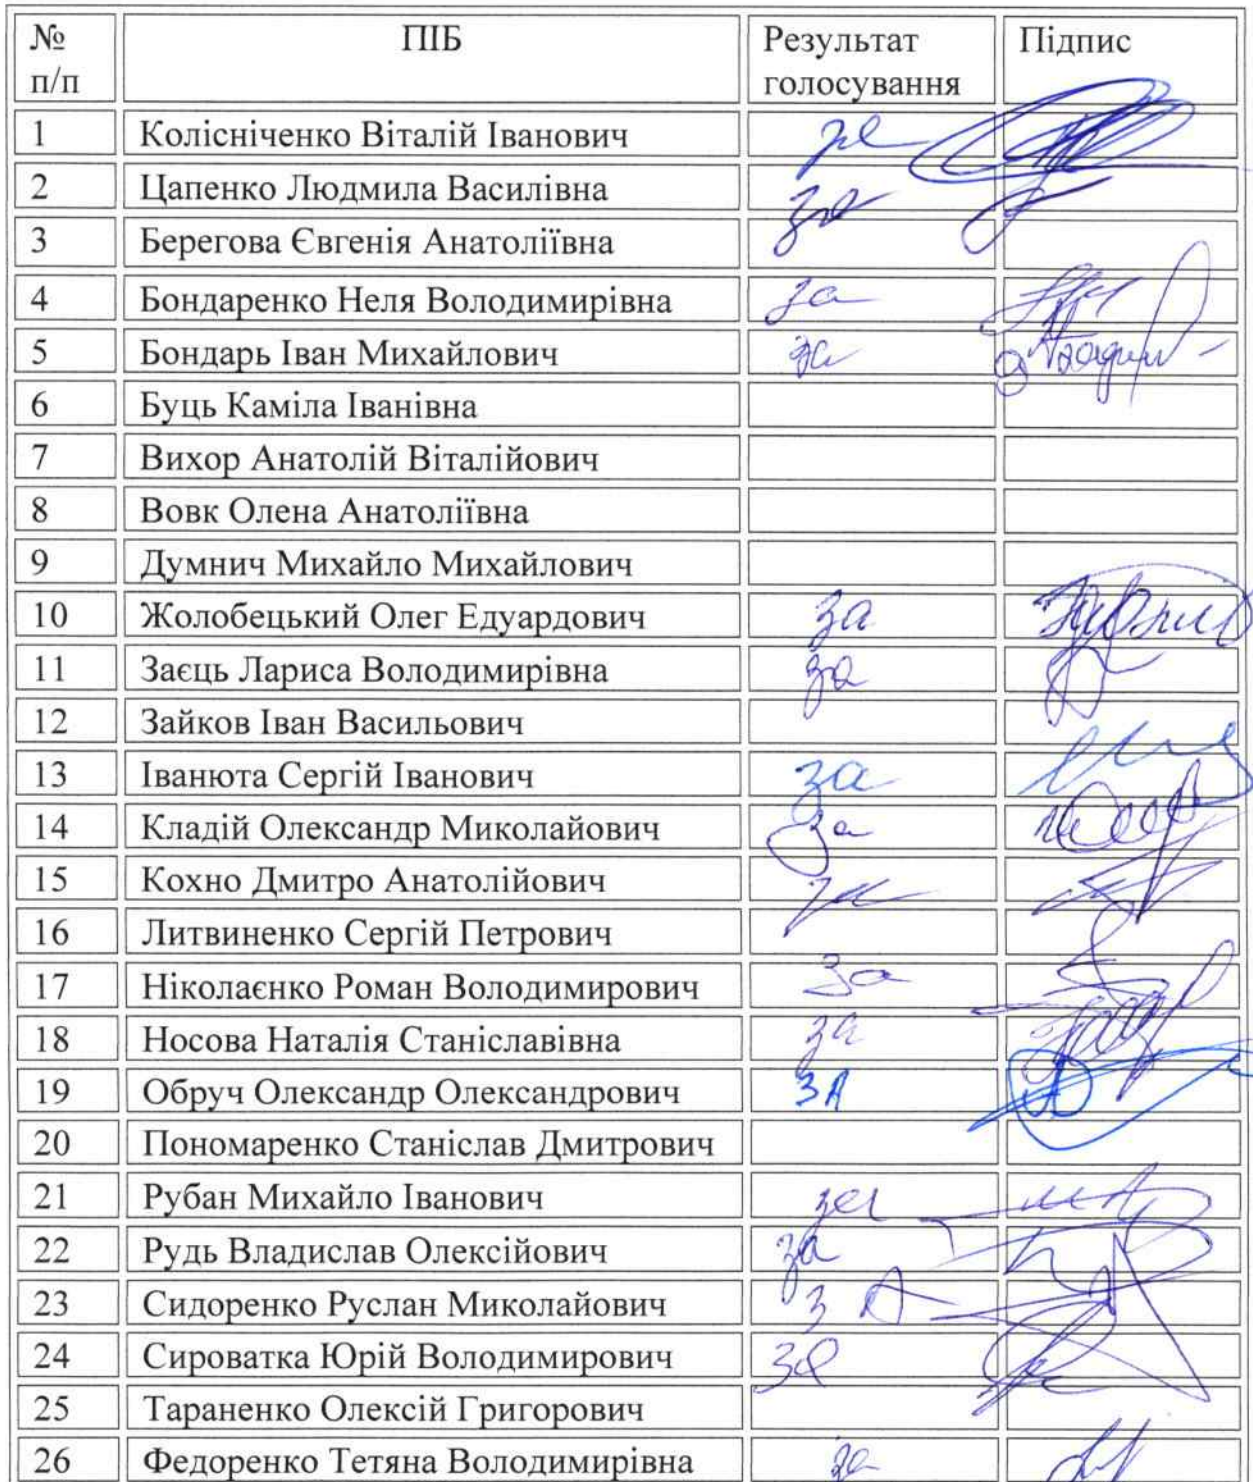 № п/п ПІБ Результат голосування Підпис
1 Колісніченко Віталій Іванович за
2 Цапенко Людмила Василівна за
3 Берегова Євгенія Анатоліївна
4 Бондаренко Неля Володимирівна за
5 Бондарь Іван Михайлович за
6 Буць Каміла Іванівна
7 Вихор Анатолій Віталійович
8 Вовк Олена Анатоліївна
9 Думнич Михайло Михайлович
10 Жолобецький Олег Едуардович за
11 Заєць Лариса Володимирівна за
12 Зайков Іван Васильович
13 Іванюта Сергій Іванович за
14 Кладій Олександр Миколайович за
15 Кохно Дмитро Анатолійович за
16 Литвиненко Сергій Петрович
17 Ніколаєнко Роман Володимирович за
18 Носова Наталія Станіславівна за
19 Обруч Олександр Олександрович ЗА
20 Пономаренко Станіслав Дмитрович
21 Рубан Михайло Іванович за
22 Рудь Владислав Олексійович за
23 Сидоренко Руслан Миколайович ЗА
24 Сироватка Юрій Володимирович за
25 Тараненко Олексій Григорович
26 Федоренко Тетяна Володимирівна за